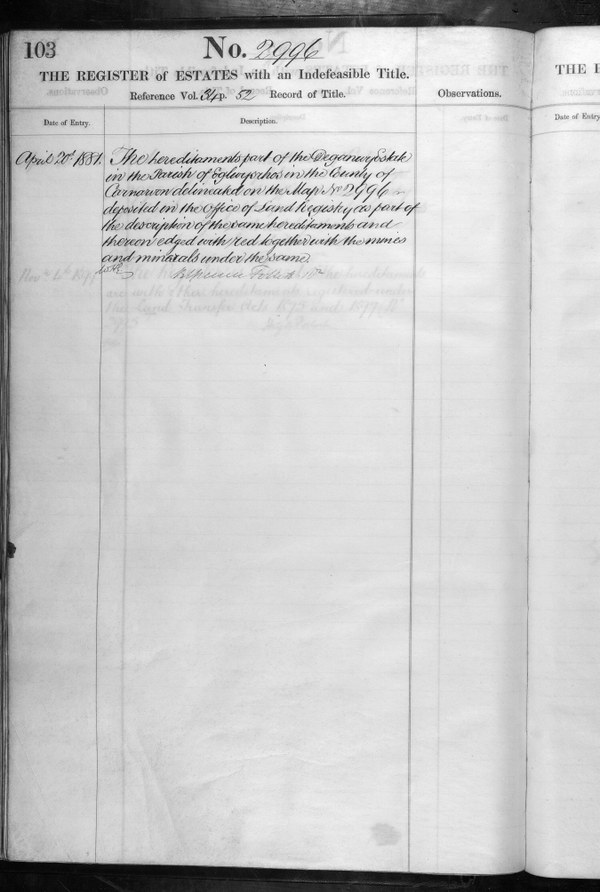 103
No. 2996
THE REGISTER of ESTATES with an Indefeasible Title.
Reference Vol. 34 p. 52 Record of Title.
Observations.
Date of Entry.
Description.
April 20th 1881.
The hereditaments part of the Deganwy Estate
in the Parish of Eglwysrhos in the County of
Carnarvon delineated on the Map No 2996
deposited in the Office of Land Registry as part of
the description of the same hereditaments and
thereon edged with red together with the mines
and minerals under the same
THE R
Date of Entry